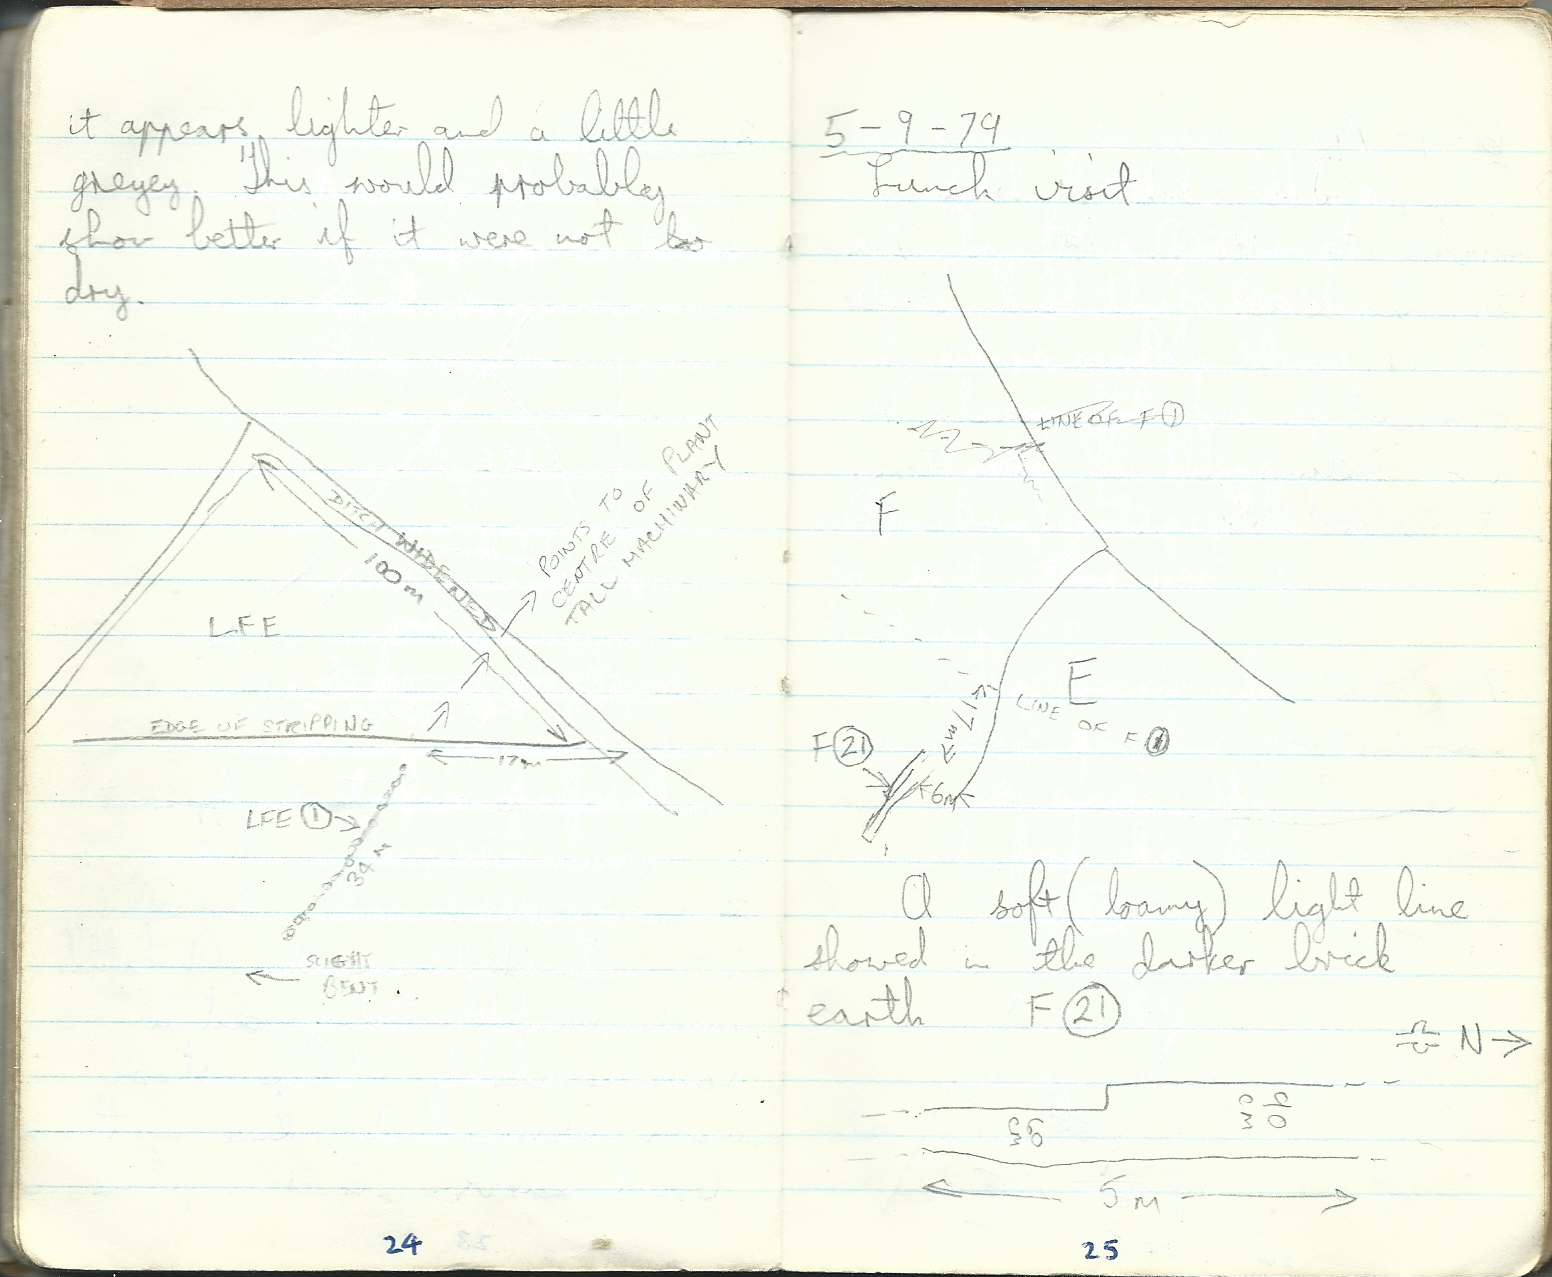 it appears lighter and a little
greyey. This would probably
show better if it were not so
dry.
DITCH WIDENED
100m
POINTS TO
CENTRE OF PLANT
TALL MACHINARY
LFE
EDGE OF STRIPPING
17m
LFE ①
34 M
SLIGHT
BENT
24
5-9-79
Lunch visit
LINE OF F ①
F
E
17m
LINE OF F
F ㉑
6m
A soft (loamy) light line
showed in the darker brick
earth F ㉑
N
90
cm
5m
25